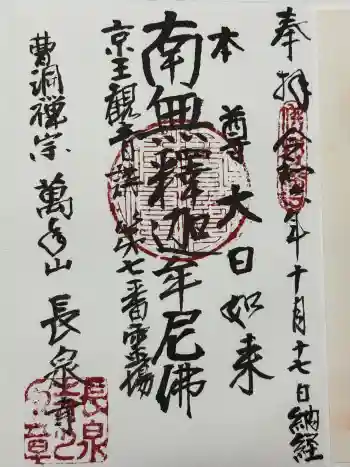 奉拝 令和 年十月十七日納経
本尊 大日如来
南無釋迦牟尼佛
京王観音講 第七番霊場
曹洞禅宗 萬 山 長泉寺
長泉